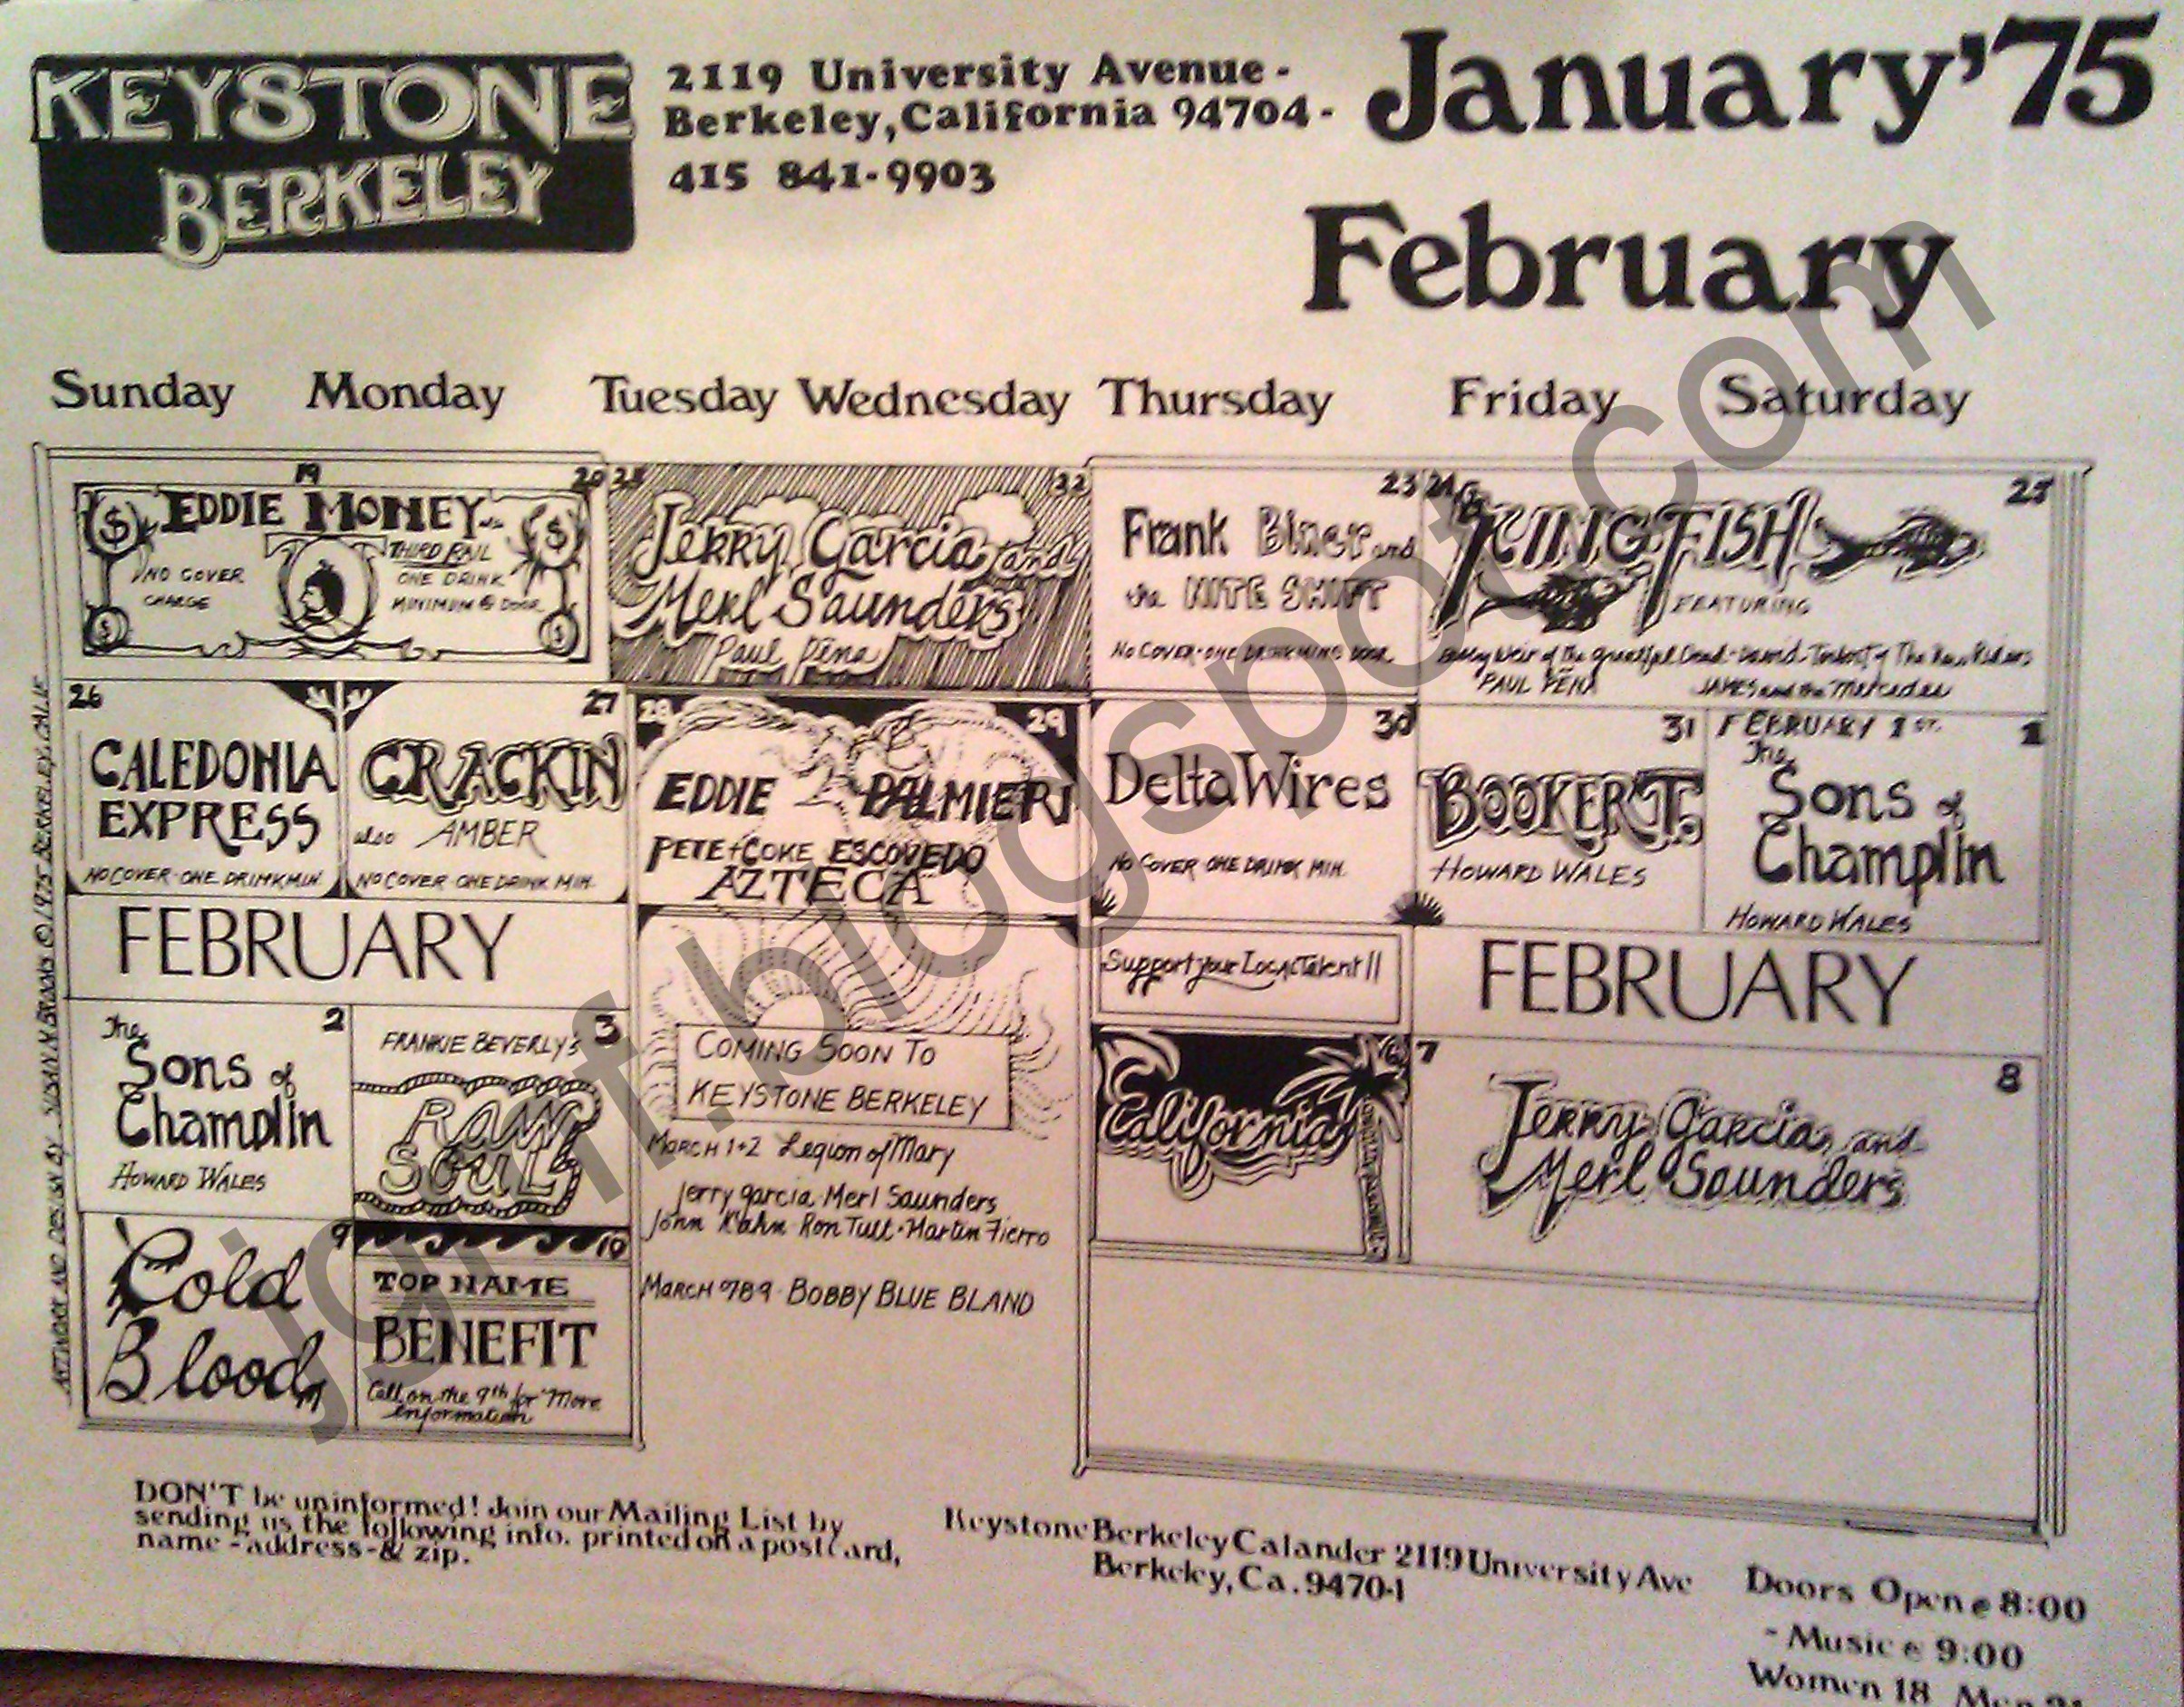 KEYSTONE
BERKELEY
2119 University Avenue -
Berkeley, California 94704 -
415 841-9903
January '75
February
Sunday Monday Tuesday Wednesday Thursday Friday Saturday
19
20
EDDIE MONEY
THIRD RAIL
NO COVER
CHARGE
ONE DRINK
MINIMUM @ DOOR
22
Jerry Garcia and
Merl Saunders
Paul Pena
23
Frank Biner and
the NITE SHIFT
NO COVER · ONE DRINK MIN @ DOOR
24
25
KINGFISH
FEATURING
Bobby Weir of the Grateful Dead - David Torbert of The New Riders
PAUL PENA
JAMES and the Mercedes
26
CALEDONIA
EXPRESS
NO COVER · ONE DRINK MIN
27
CRACKIN
also AMBER
NO COVER ONE DRINK MIN.
28
29
EDDIE PALMIERI
PETE + COKE ESCOVEDO
AZTECA
30
Delta Wires
NO COVER ONE DRINK MIN.
31
BOOKER T.
HOWARD WALES
FEBRUARY 1 ST.
1
The
Sons of
Champlin
HOWARD WALES
FEBRUARY
Support your Local Talent!!
FEBRUARY
2
The
Sons of
Champlin
HOWARD WALES
3
FRANKIE BEVERLY'S
RAW
SOUL
COMING SOON TO
KEYSTONE BERKELEY
MARCH 1+2 Legion of Mary
Jerry Garcia · Merl Saunders
John Kahn · Ron Tutt · Martin Fierro
MARCH 7 8 9 · BOBBY BLUE BLAND
6
California
7
8
Jerry Garcia and
Merl Saunders
9
Cold
Blood
10
TOP NAME
BENEFIT
Call on the 9th for More
information
ARTWORK AND DESIGN BY SUSAN M. © 1975 BERKELEY, CALIF
DON'T be uninformed! Join our Mailing List by
sending us the following info. printed on a postcard,
name - address - & zip.
Keystone Berkeley Calander 2119 University Ave
Berkeley, Ca. 94704
Doors Open @ 8:00
- Music @ 9:00
Women 18 Men
jgmf.blogspot.com